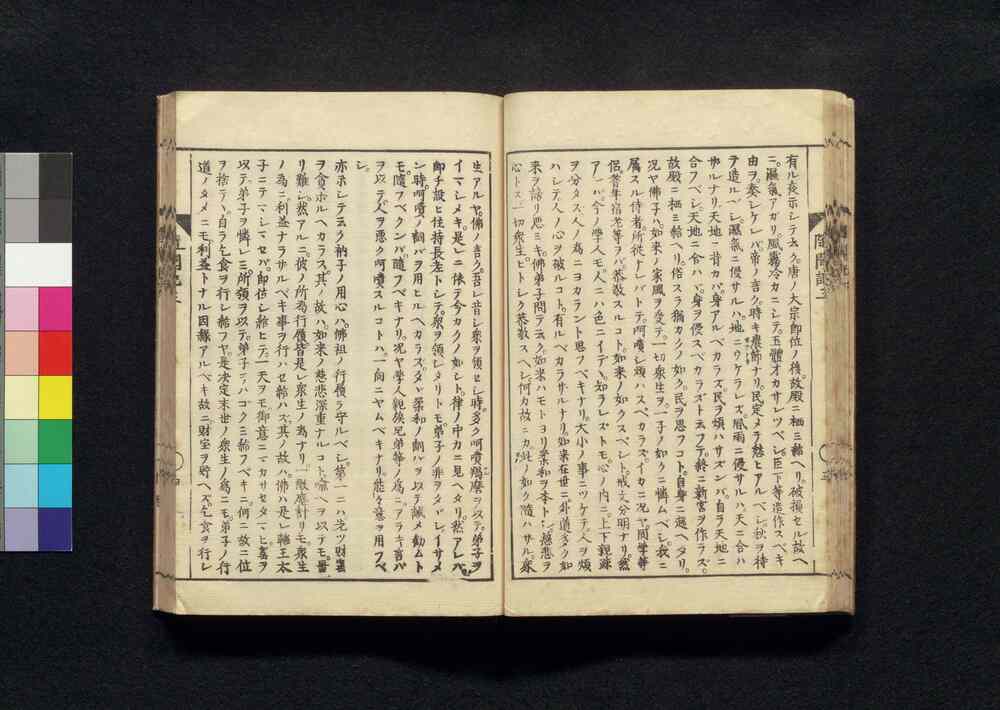 有ル夜示シテ云ク。唐ノ太宗即位ノ後。故殿ニ栖ミ給ヘリ。破損セル故ヘ
ニ。濕氣アガリ。風霧冷カニシテ。玉體オカサレツベシ。臣下等造作スベキ
由ヲ。奏シケレバ。帝ノ言ク。時キ農節ナリ。民定メテ愁ヒアルベシ。秋ヲ待
テ造ルベシ。濕氣ニ侵サルハ。地ニウケラレズ。風雨ニ侵サルハ。天ニ合ハ
サルナリ。天地ニ背カバ。身アルベカラズ。民ヲ煩ハサズンバ。自ラ天地ニ
合フベシ。天地ニ合ハヾ。身ヲ侵スベカラズト云フテ。終ニ新宮ヲ作ラズ。
故殿ニ栖ミ給ヘリ。俗スラ猶カクノ如ク。民ヲ思フコト。自身ニ超ヘタリ。
況ヤ佛子ハ。如來ノ家風ヲ受テ。一切衆生ヲ。一子ノ如クニ憐ムベシ。我ニ
屬スル侍者所從トレバトテ。呵嘖シ煩ハスベカラズ。イカニ況ヤ同學等
侶。耆年宿老等ヲバ。恭敬スルコト。如來ノ如クスベシト。戒文分明ナリ。然
アレバ。今ノ學人モ。人ニハ色ニイデヽ。知ラレズトモ。心ノ内ニ。上下親疎
ヲ分タズ。人ノ爲ニヨカラント思フベキナリ。大小ノ事ニツケテ。人ヲ煩
ハシテ。人ノ心ヲ破ルコト。有ルベカラサルナリ。如來在世ニ。外道多ク如
來ヲ謗リ惡ミキ。佛弟子問テ云ク。如來ハモトヨリ柔和ヲ本トシ。慈悲ヲ
心トス。一切衆生ヒトシク恭敬スヘシ。何カ故ニカ。此ノ如ク隨ハサル衆
生アルヤ。佛ノ言ク。吾レ昔シ衆ヲ領セシ時。多ク呵嘖羯磨ヲ以テ。弟子ヲ
イマシメキ。是レニ依テ今カクノ如シト。律ノ中カニ見ヘタリ。然アレバ。
即チ設ヒ住持長老トシテ。衆ヲ領シタリトモ。弟子ノ非ヲタヾシイサメ
ン時。呵嘖ノ詞バヲ用ヒルベカラズ。タヾ柔和ノ詞バヲ以テ誡メ勸ムト
モ。隨フベクンバ。隨フベキナリ。況ヤ學人。親族兄弟等ノ爲ニ。アラキ言バ
ヲ以テ。人ヲ惡ク呵嘖スルコトハ。一向ニヤムベキナリ。能々意ヲ用フベ
シ。
亦示シテ云ク。衲子ノ用心ハ。佛祖ノ行履ヲ守ルベシ。第一ニハ先ヅ財寶
ヲ貪ホルヘカラス。其ノ故ハ。如來ノ慈悲深重ナルコト。喩ヘヲ以テモ。量
リ難シ。然アルニ彼ノ所爲行履。皆是レ衆生ノ爲ナリ。一微塵計リモ。衆生
ノ爲ニ。利益ナラサルベキ事ヲ。行ハセ給ハズ。其ノ故ハ。佛ハ是レ輪王太
子ニテマシマセバ。即位シ給ヒテ。天下モ御意ニマカリセタマヒ。寶ヲ
以テ。弟子ヲ憐レミ。所領ヲ以テ。弟子ヲハゴクミ給フベキニ。何ニ故ニ位
ヲ捨テヽ。自ラ乞食ヲ行シ給フヤ。是レ決定末世ノ衆生ノ爲ニモ。弟子ノ行
道ノタメニモ。利益トナル因縁アルベキ故ニ。財寶ヲ貯ヘズ。乞食ヲ行シ